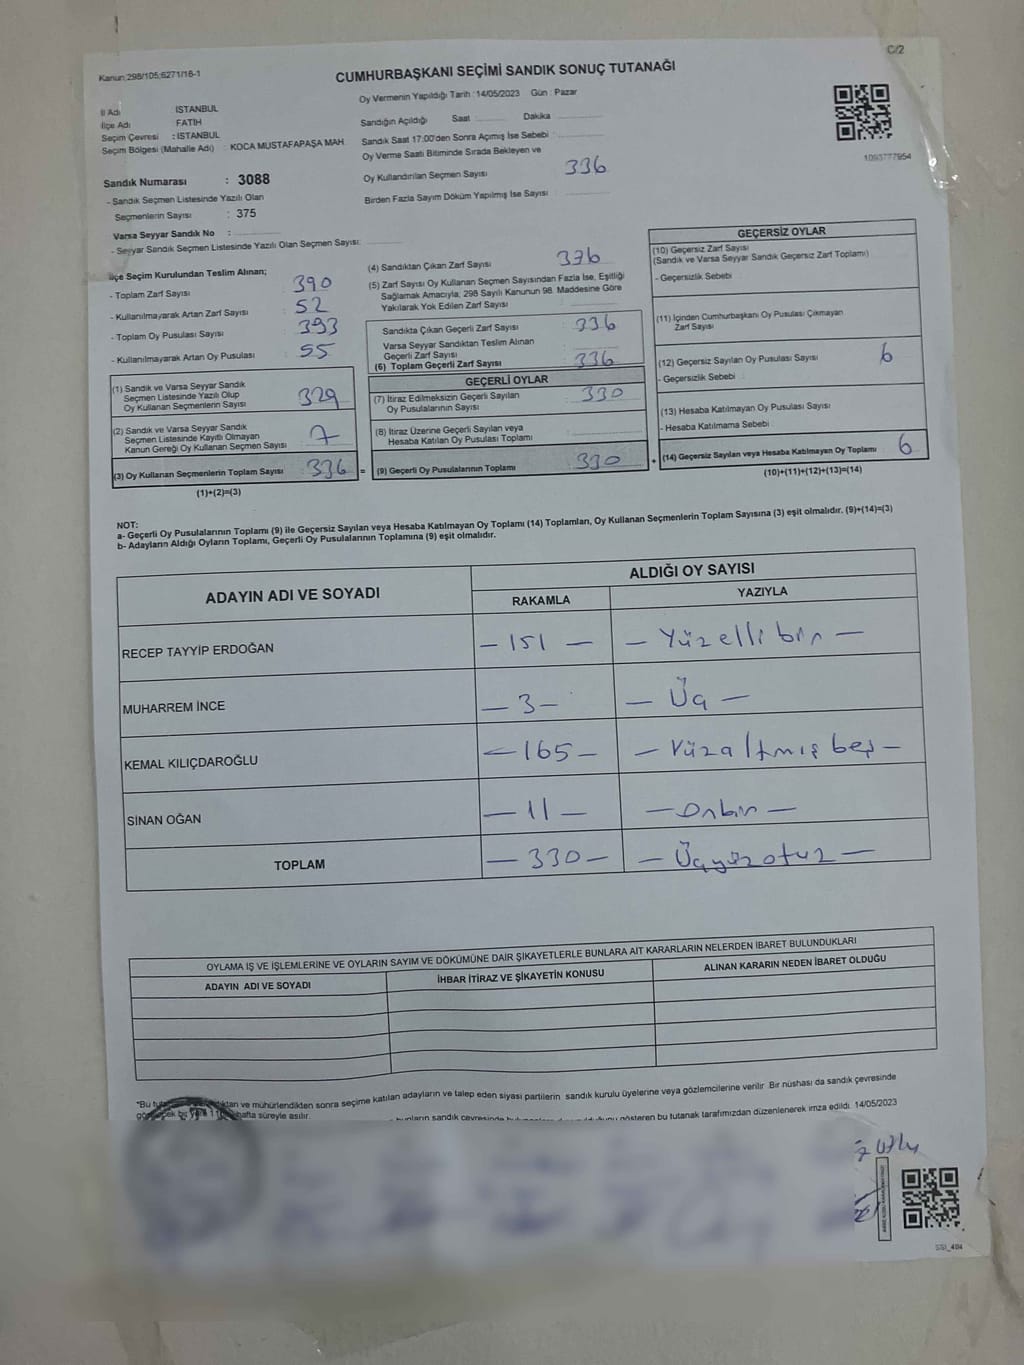 C/2
Kanun:298/105;6271/16-1
CUMHURBAŞKANI SEÇİMİ SANDIK SONUÇ TUTANAĞI
İl Adı : İSTANBUL
İlçe Adı : FATİH
Seçim Çevresi : İSTANBUL
Seçim Bölgesi (Mahalle Adı) : KOCA MUSTAFAPAŞA MAH.
Sandık Numarası : 3088
- Sandık Seçmen Listesinde Yazılı Olan
Seçmenlerin Sayısı : 375
Varsa Seyyar Sandık No :
- Seyyar Sandık Seçmen Listesinde Yazılı Olan Seçmen Sayısı:
Oy Vermenin Yapıldığı Tarih : 14/05/2023 Gün : Pazar
Sandığın Açıldığı Saat Dakika
Sandık Saat 17:00'den Sonra Açımış İse Sebebi :
Oy Verme Saati Bitiminde Sırada Bekleyen ve
Oy Kullandırılan Seçmen Sayısı 336
Birden Fazla Sayım Döküm Yapılmış İse Sayısı :
1093777954
İlçe Seçim Kurulundan Teslim Alınan;
- Toplam Zarf Sayısı : 390
- Kullanılmayarak Artan Zarf Sayısı : 52
- Toplam Oy Pusulası Sayısı : 393
- Kullanılmayarak Artan Oy Pusulası : 55
(1) Sandık ve Varsa Seyyar Sandık
Seçmen Listesinde Yazılı Olup
Oy Kullanan Seçmenlerin Sayısı : 329
(2) Sandık ve Varsa Seyyar Sandık
Seçmen Listesinde Kayıtlı Olmayan
Kanun Gereği Oy Kullanan Seçmen Sayısı : 7
(3) Oy Kullanan Seçmenlerin Toplam Sayısı : 336 =
(1)+(2)=(3)
(4) Sandıktan Çıkan Zarf Sayısı : 336
(5) Zarf Sayısı Oy Kullanan Seçmen Sayısından Fazla İse, Eşitliği
Sağlamak Amacıyla; 298 Sayılı Kanunun 98. Maddesine Göre
Yakılarak Yok Edilen Zarf Sayısı :
Sandıkta Çıkan Geçerli Zarf Sayısı : 336
Varsa Seyyar Sandıktan Teslim Alınan
Geçerli Zarf Sayısı :
(6) Toplam Geçerli Zarf Sayısı : 336
GEÇERLİ OYLAR
(7) İtiraz Edilmeksizin Geçerli Sayılan
Oy Pusulalarının Sayısı : 330
(8) İtiraz Üzerine Geçerli Sayılan veya
Hesaba Katılan Oy Pusulası Toplamı :
(9) Geçerli Oy Pusulalarının Toplamı : 330 +
GEÇERSİZ OYLAR
(10) Geçersiz Zarf Sayısı
(Sandık ve Varsa Seyyar Sandık Geçersiz Zarf Toplamı)
- Geçersizlik Sebebi
(11) İçinden Cumhurbaşkanı Oy Pusulası Çıkmayan
Zarf Sayısı
(12) Geçersiz Sayılan Oy Pusulası Sayısı 6
- Geçersizlik Sebebi :
(13) Hesaba Katılmayan Oy Pusulası Sayısı
- Hesaba Katılmama Sebebi
(14) Geçersiz Sayılan veya Hesaba Katılmayan Oy Toplamı : 6
(10)+(11)+(12)+(13)=(14)
NOT:
a- Geçerli Oy Pusulalarının Toplamı (9) ile Geçersiz Sayılan veya Hesaba Katılmayan Oy Toplamı (14) Toplamları, Oy Kullanan Seçmenlerin Toplam Sayısına (3) eşit olmalıdır. (9)+(14)=(3)
b- Adayların Aldığı Oyların Toplamı, Geçerli Oy Pusulalarının Toplamına (9) eşit olmalıdır.
ADAYIN ADI VE SOYADI
ALDIĞI OY SAYISI
RAKAMLA YAZIYLA
RECEP TAYYİP ERDOĞAN – 151 – – Yüzelli bir –
MUHARREM İNCE – 3 – – Üç –
KEMAL KILIÇDAROĞLU – 165 – – Yüzaltmış beş –
SİNAN OĞAN – 11 – – Onbir –
TOPLAM – 330 – – Üçyüzotuz –
OYLAMA İŞ VE İŞLEMLERİNE VE OYLARIN SAYIM VE DÖKÜMÜNE DAİR ŞİKAYETLERLE BUNLARA AİT KARARLARIN NELERDEN İBARET BULUNDUKLARI
ADAYIN ADI VE SOYADI İHBAR İTİRAZ VE ŞİKAYETİN KONUSU ALINAN KARARIN NEDEN İBARET OLDUĞU
*Bu ve mühürlendikten sonra seçime katılan adayların ve talep eden siyasi partilerin sandık kurulu üyelerine veya gözlemcilerine verilir. Bir nüshası da sandık çevresinde
hafta süreyle asılır.
gösteren bu tutanak tarafımızdan düzenlenerek imza edildi. 14/05/2023